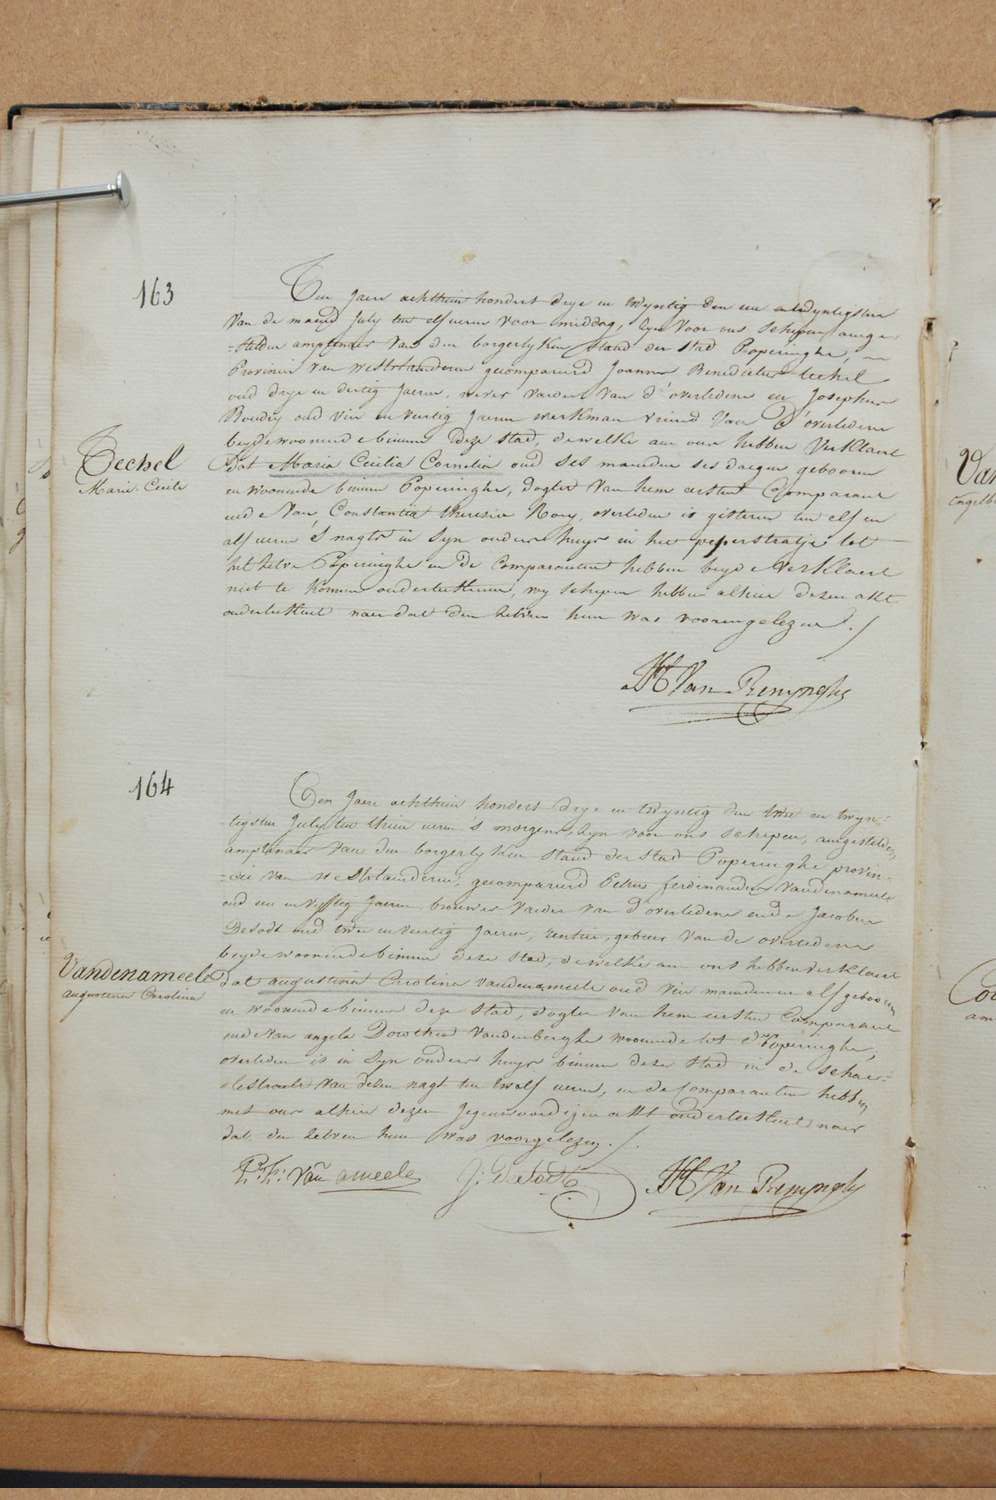 163
Den Jaere achthien hondert drye en twyntig den een en twyntigsten
Van de maend July ten elf ueren voor middag, syn voor ons schepen aenge-
-stelden amptenaer van den borgerlyken stand der stad Poperinghe,
Provincie van westvlanderen gecompareerd Joannes Benedictus techel
oud drye en dertig Jaeren, wever vader van d'overledene en Josephus
Boudry oud vier en veertig Jaeren werkman vriend Van d'overledene
beyde woonende binnen deze stad, dewelke aen ons hebben verklaert
Techel
Marie Cecile
dat Maria Cecilia Cornelia oud ses maenden ses daegen gebooren
en woonende binnen Poperinghe, dogter van hem eersten Comparant
ende van Constantia theresia Rony, overleden is gisteren ten elf en
alf ueren s' nagts in syn ouders huys in het peperstraetje tot
het zelve Poperinghe en de Comparanten hebben beyde verklaert
niet te konnen onderteekenen, wy schepen hebben alhier dezen akt
onderteekent naer dat den zelven hun was voorengelezen ./
H Van Renynghe
164
Den Jaere achthien hondert drye en twyntig den twee en twyn-
-tigsten July ten thien ueren 's morgens, syn voor ons schepen, aengestelden
amptenaer van den borgerlyken stand der stad Poperinghe provin-
-cie van westvlanderen, gecompareerd Petrus ferdinandus vandenameele
oud een en vyftig Jaeren, brouwer vader van d'overledene ende Jacobus
Desodt oud twee en veertig Jaeren, rentier, gebuer van de overledene
beyde woonende binnen deze stad, dewelke aen ons hebben verklaert
Vandenameele
augustina Carolina
dat augustina Carolina vandenameele oud vier maenden en elf gebooren
en woonende binnen deze stad, dogter van hem eersten Comparant
ende van angela Dorothea Vandenberghe woonende tot Poperinghe,
overleden is in syn ouders huys binnen deze stad in de schaer-
-destraete van dezen nagt ten twalf ueren, en de Comparanten hebben
met ons alhier dezen jegenwoordigen akt onderteekent naer
dat den zelven hun was voorgelezen ./.
P: F: Van ameele J: Desodt H Van Renynghe
Van
Engelb